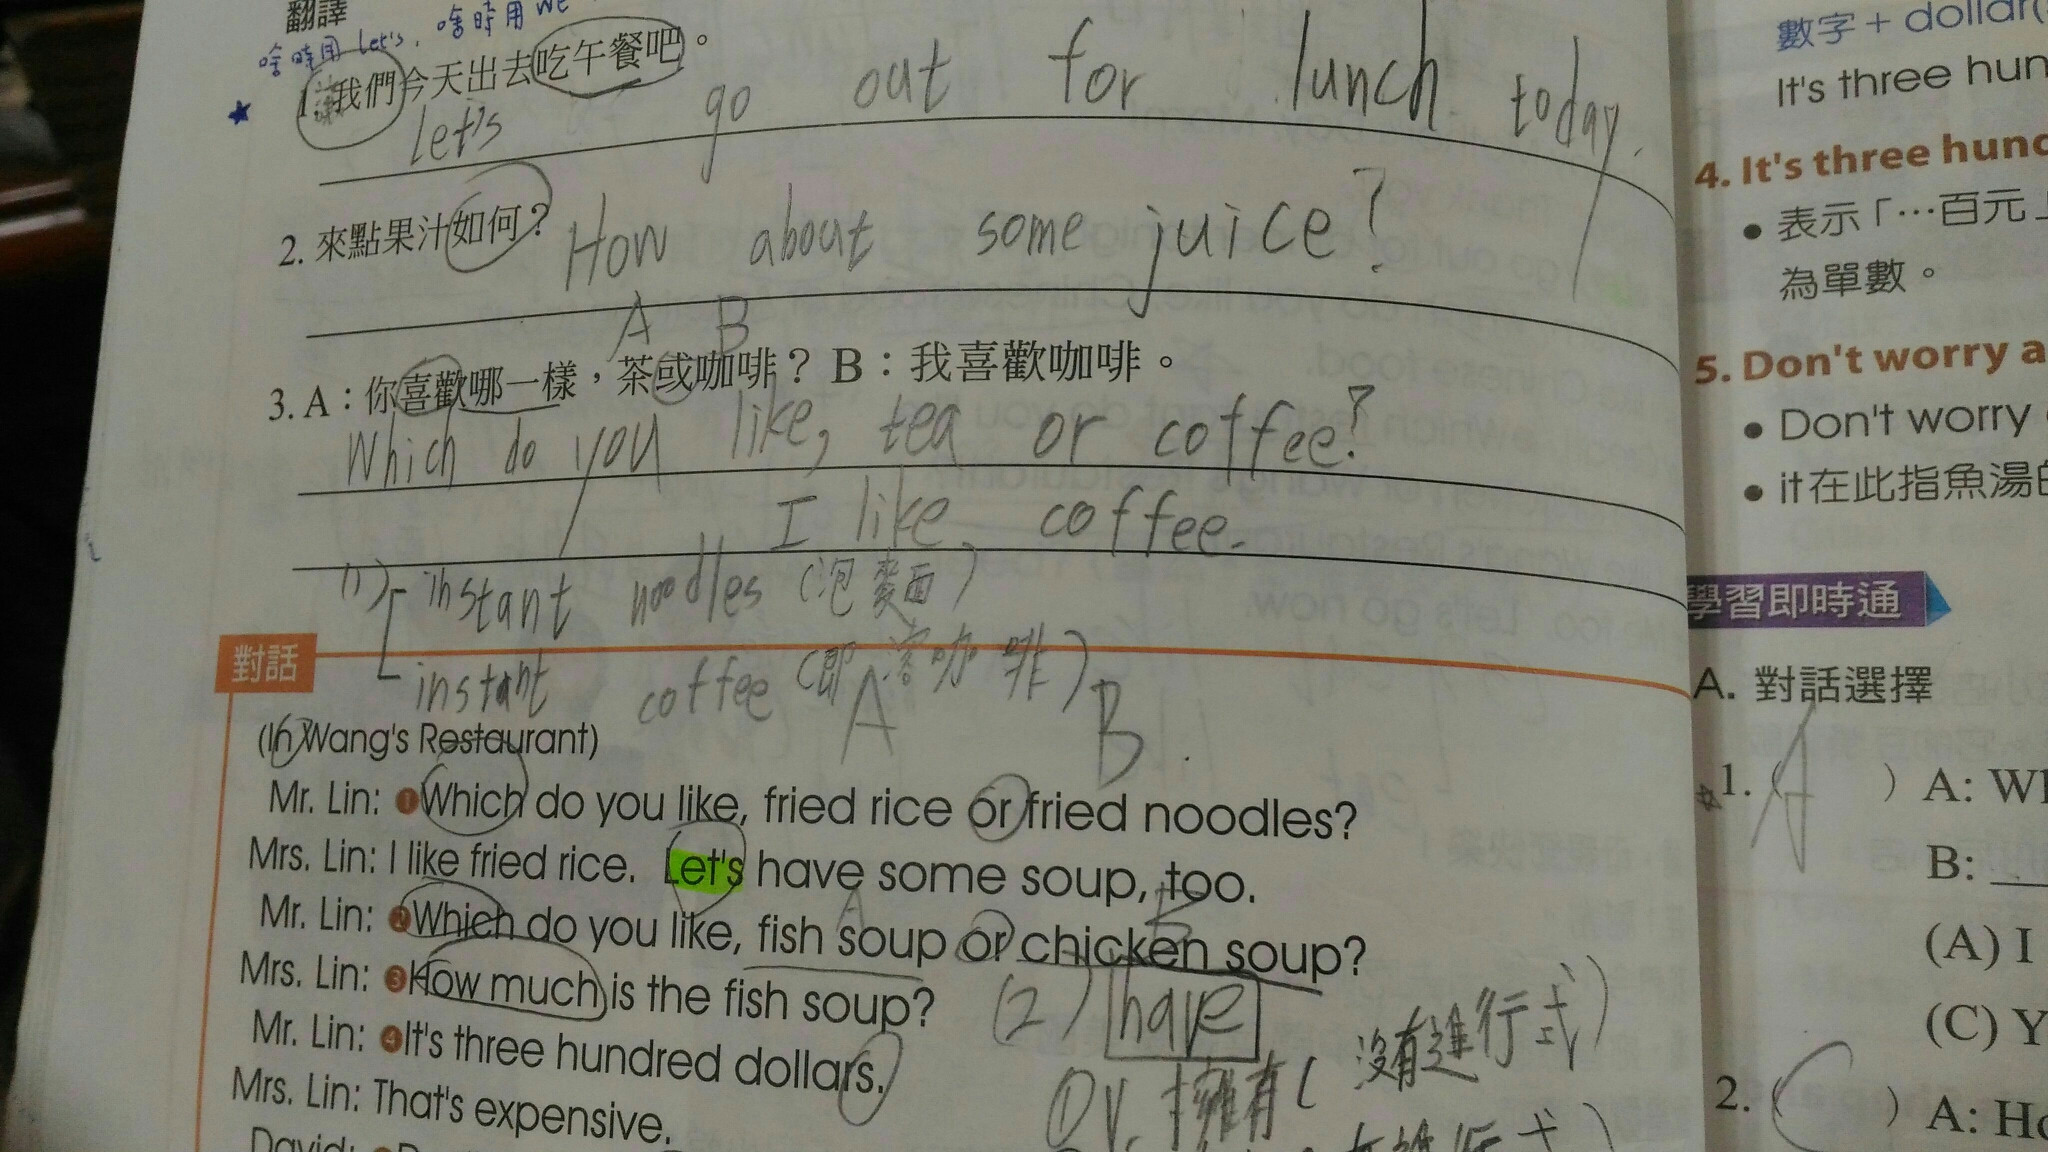 翻譯
啥時用 Let's, 啥時用 we
1. 我們今天出去吃午餐吧。
Let's go out for lunch today.
2. 來點果汁如何?
How about some juice?
A B
3. A:你喜歡哪一樣,茶或咖啡? B:我喜歡咖啡。
Which do you like, tea or coffee?
I like coffee.
(1) instant noodles (泡麵)
instant coffee (即溶咖啡)
對話
A B
(In Wang's Restaurant)
Mr. Lin: ❶Which do you like, fried rice or fried noodles?
Mrs. Lin: I like fried rice. Let's have some soup, too.
A B
Mr. Lin: ❷Which do you like, fish soup or chicken soup?
Mrs. Lin: ❸How much is the fish soup?
(2) have
Mr. Lin: ❹It's three hundred dollars.
Mrs. Lin: That's expensive.
①V. 擁有(沒有進行式)
David:
數字 + dollar(
It's three hun
4. It's three hund
• 表示「…百元」
為單數。
5. Don't worry a
• Don't worry
• it在此指魚湯的
學習即時通
A. 對話選擇
1. ( A ) A: Wh
B:
(A) I
(C) Y
2. ( C ) A: Ho